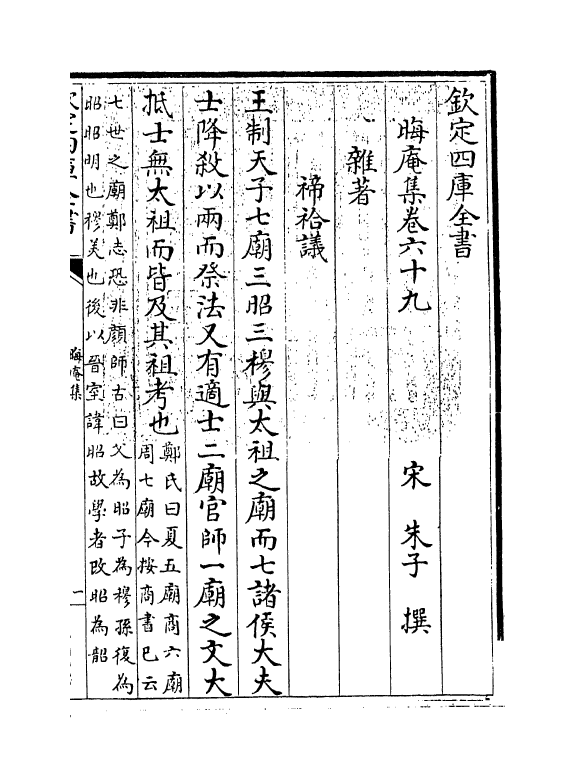 欽定四庫全書
晦庵集卷六十九
宋 朱子 撰
雜著
禘祫議
王制天子七廟三昭三穆與太祖之廟而七諸侯大夫
士降殺以兩而祭法又有適士二廟官師一廟之文大
抵士無太祖而皆及其祖考也
鄭氏曰夏五廟商六廟
周七廟今按商書已云
七世之廟鄭志恐非顔師古曰父為昭子為穆孫復為
昭昭明也穆美也後以晉室諱昭故學者改昭為韶
晦庵集
一